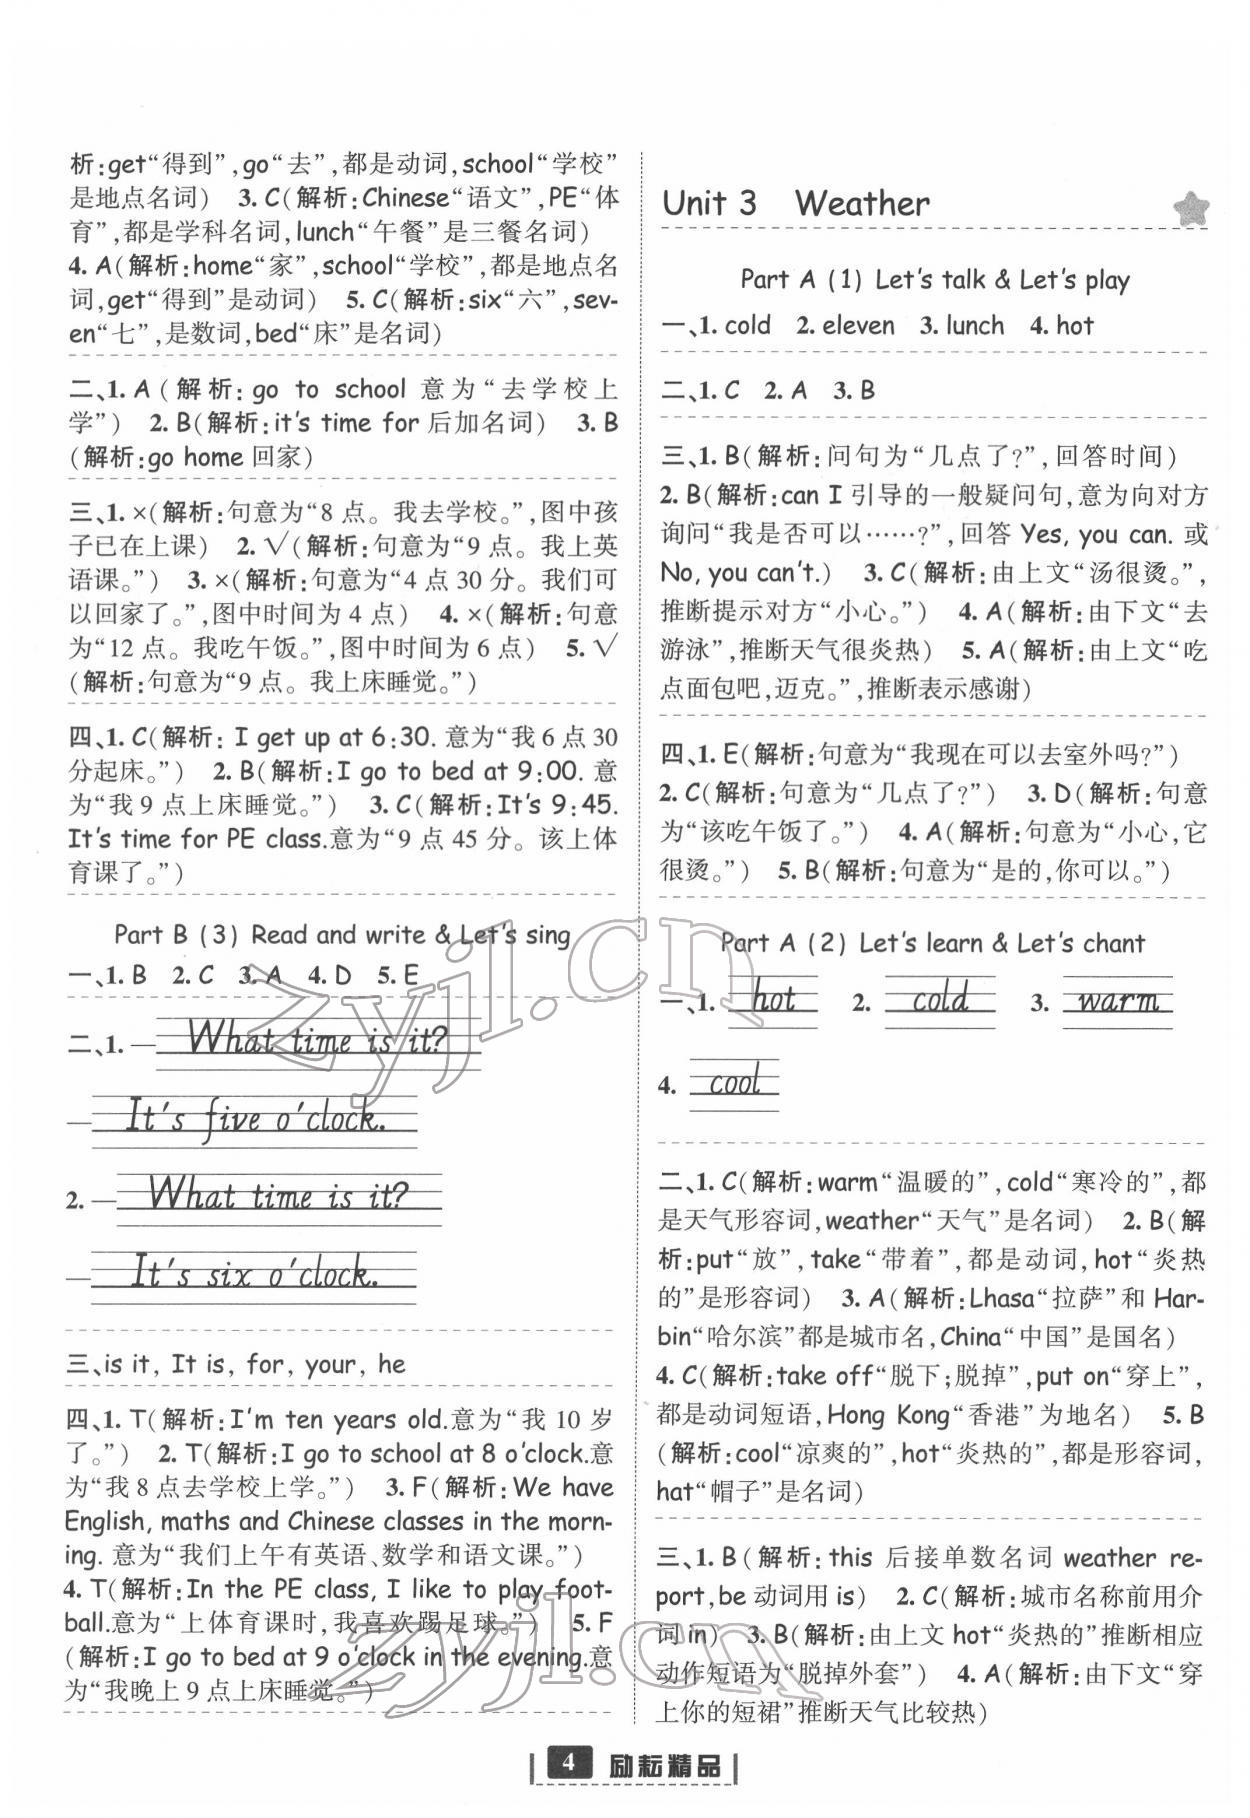 析:get“得到”,go“去”,都是动词,school“学校”
是地点名词) 3. C(解析:Chinese“语文”,PE“体
育”,都是学科名词,lunch“午餐”是三餐名词)
4. A(解析:home“家”,school“学校”,都是地点名
词,get“得到”是动词) 5. C(解析:six“六”,sev-
en“七”,是数词,bed“床”是名词)
二、1. A(解析: go to school 意为“去学校上
学”) 2. B(解析:it's time for 后加名词) 3. B
(解析:go home 回家)
三、1. ×(解析:句意为“8 点。我去学校。”,图中孩
子已在上课) 2. √(解析:句意为“9 点。我上英
语课。”) 3. ×(解析:句意为“4 点 30 分。我们可
以回家了。”,图中时间为 4 点) 4. ×(解析:句意
为“12 点。我吃午饭。”,图中时间为 6 点) 5. √
(解析:句意为“9 点。我上床睡觉。”)
四、1. C(解析: I get up at 6:30. 意为“我 6 点 30
分起床。”) 2. B(解析:I go to bed at 9:00. 意
为“我 9 点上床睡觉。”) 3. C(解析:It's 9:45.
It's time for PE class.意为“9 点 45 分。该上体
育课了。”)
Part B (3) Read and write & Let's sing
一、1. B 2. C 3. A 4. D 5. E
二、1. —What time is it?
—It's five o'clock.
2. —What time is it?
—It's six o'clock.
三、is it, It is, for, your, he
四、1. T(解析:I'm ten years old.意为“我 10 岁
了。”) 2. T(解析:I go to school at 8 o'clock.意
为“我 8 点去学校上学。”) 3. F(解析:We have
English, maths and Chinese classes in the morn-
ing. 意为“我们上午有英语、数学和语文课。”)
4. T(解析:In the PE class, I like to play foot-
ball.意为“上体育课时,我喜欢踢足球。”) 5. F
(解析:I go to bed at 9 o'clock in the evening.意
为“我晚上 9 点上床睡觉。”)
Unit 3 Weather
Part A (1) Let's talk & Let's play
一、1. cold 2. eleven 3. lunch 4. hot
二、1. C 2. A 3. B
三、1. B(解析:问句为“几点了?”,回答时间)
2. B(解析:can I 引导的一般疑问句,意为向对方
询问“我是否可以……?”,回答 Yes, you can. 或
No, you can't.) 3. C(解析:由上文“汤很烫。”,
推断提示对方“小心。”) 4. A(解析:由下文“去
游泳”,推断天气很炎热) 5. A(解析:由上文“吃
点面包吧,迈克。”,推断表示感谢)
四、1. E(解析:句意为“我现在可以去室外吗?”)
2. C(解析:句意为“几点了?”) 3. D(解析:句意
为“该吃午饭了。”) 4. A(解析:句意为“小心,它
很烫。”) 5. B(解析:句意为“是的,你可以。”)
Part A (2) Let's learn & Let's chant
一、1. hot 2. cold 3. warm
4. cool
二、1. C(解析:warm“温暖的”,cold“寒冷的”,都
是天气形容词,weather“天气”是名词) 2. B(解
析:put“放”,take“带着”,都是动词,hot“炎热
的”是形容词) 3. A(解析:Lhasa“拉萨”和 Har-
bin“哈尔滨”都是城市名,China“中国”是国名)
4. C(解析:take off“脱下;脱掉”,put on“穿上”,
都是动词短语,Hong Kong“香港”为地名) 5. B
(解析:cool“凉爽的”,hot“炎热的”,都是形容词,
hat“帽子”是名词)
三、1. B(解析:this 后接单数名词 weather re-
port,be 动词用 is) 2. C(解析:城市名称前用介
词in) 3. B(解析:由上文 hot“炎热的”推断相应
动作短语为“脱掉外套”) 4. A(解析:由下文“穿
上你的短裙”推断天气比较热)
4 励耘精品
zyjl.cn
zyjl.cn